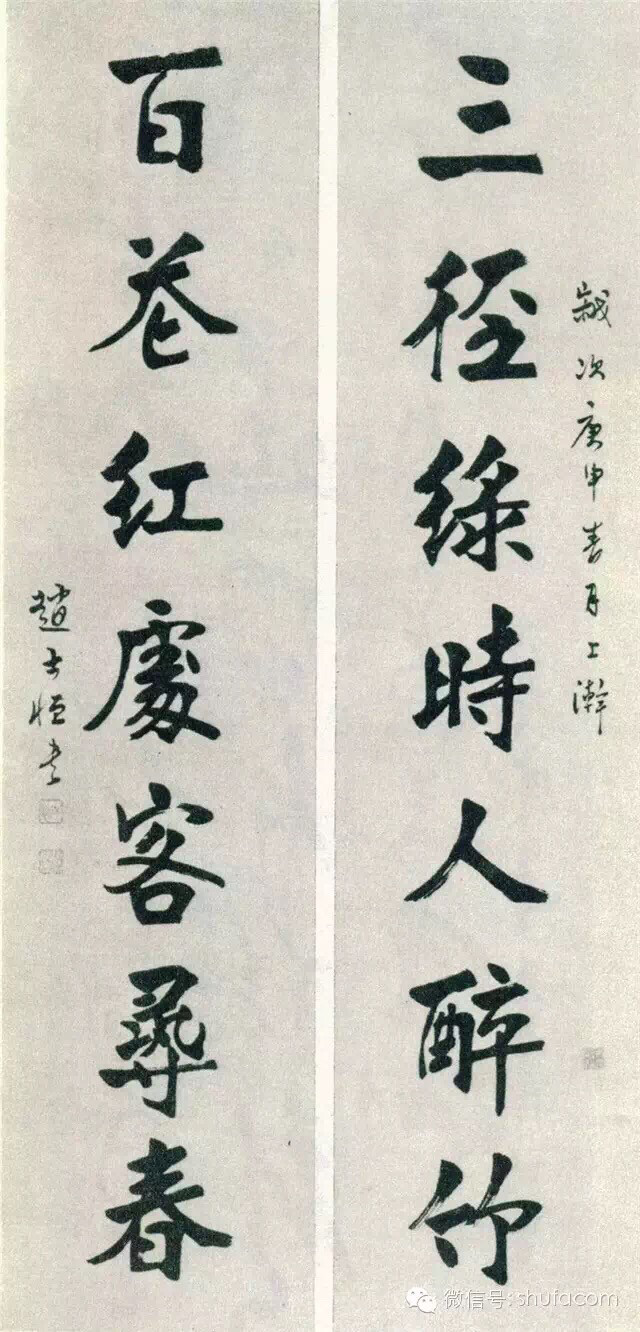 三徑綠時人醉竹
歲次庚申春月上澣
百巷紅處客尋春
趙士恒書
微信号:shufacom